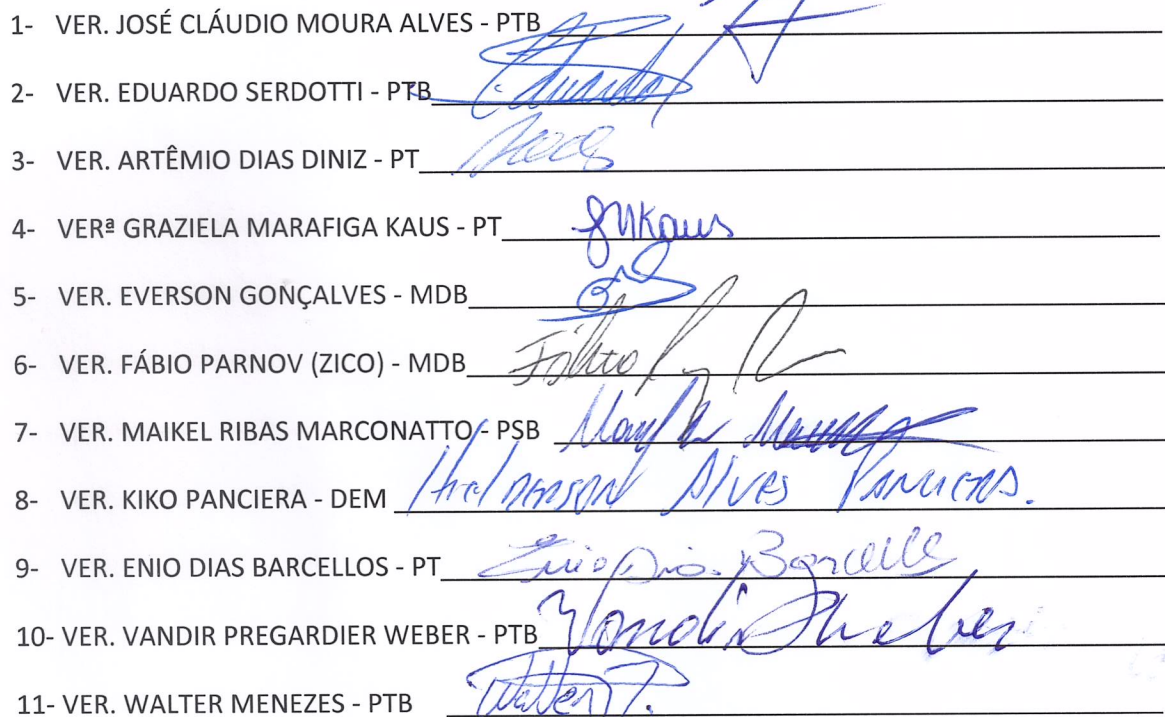 1- VER. JOSÉ CLÁUDIO MOURA ALVES - PTB
2- VER. EDUARDO SERDOTTI - PTB Eduardo
3- VER. ARTÊMIO DIAS DINIZ - PT
4- VERª GRAZIELA MARAFIGA KAUS - PT GMKaus
5- VER. EVERSON GONÇALVES - MDB
6- VER. FÁBIO PARNOV (ZICO) - MDB Fábio
7- VER. MAIKEL RIBAS MARCONATTO - PSB
8- VER. KIKO PANCIERA - DEM ALVES PANCIERA.
9- VER. ENIO DIAS BARCELLOS - PT Enio Dias Barcello
10- VER. VANDIR PREGARDIER WEBER - PTB Vandir Weber
11- VER. WALTER MENEZES - PTB Walter